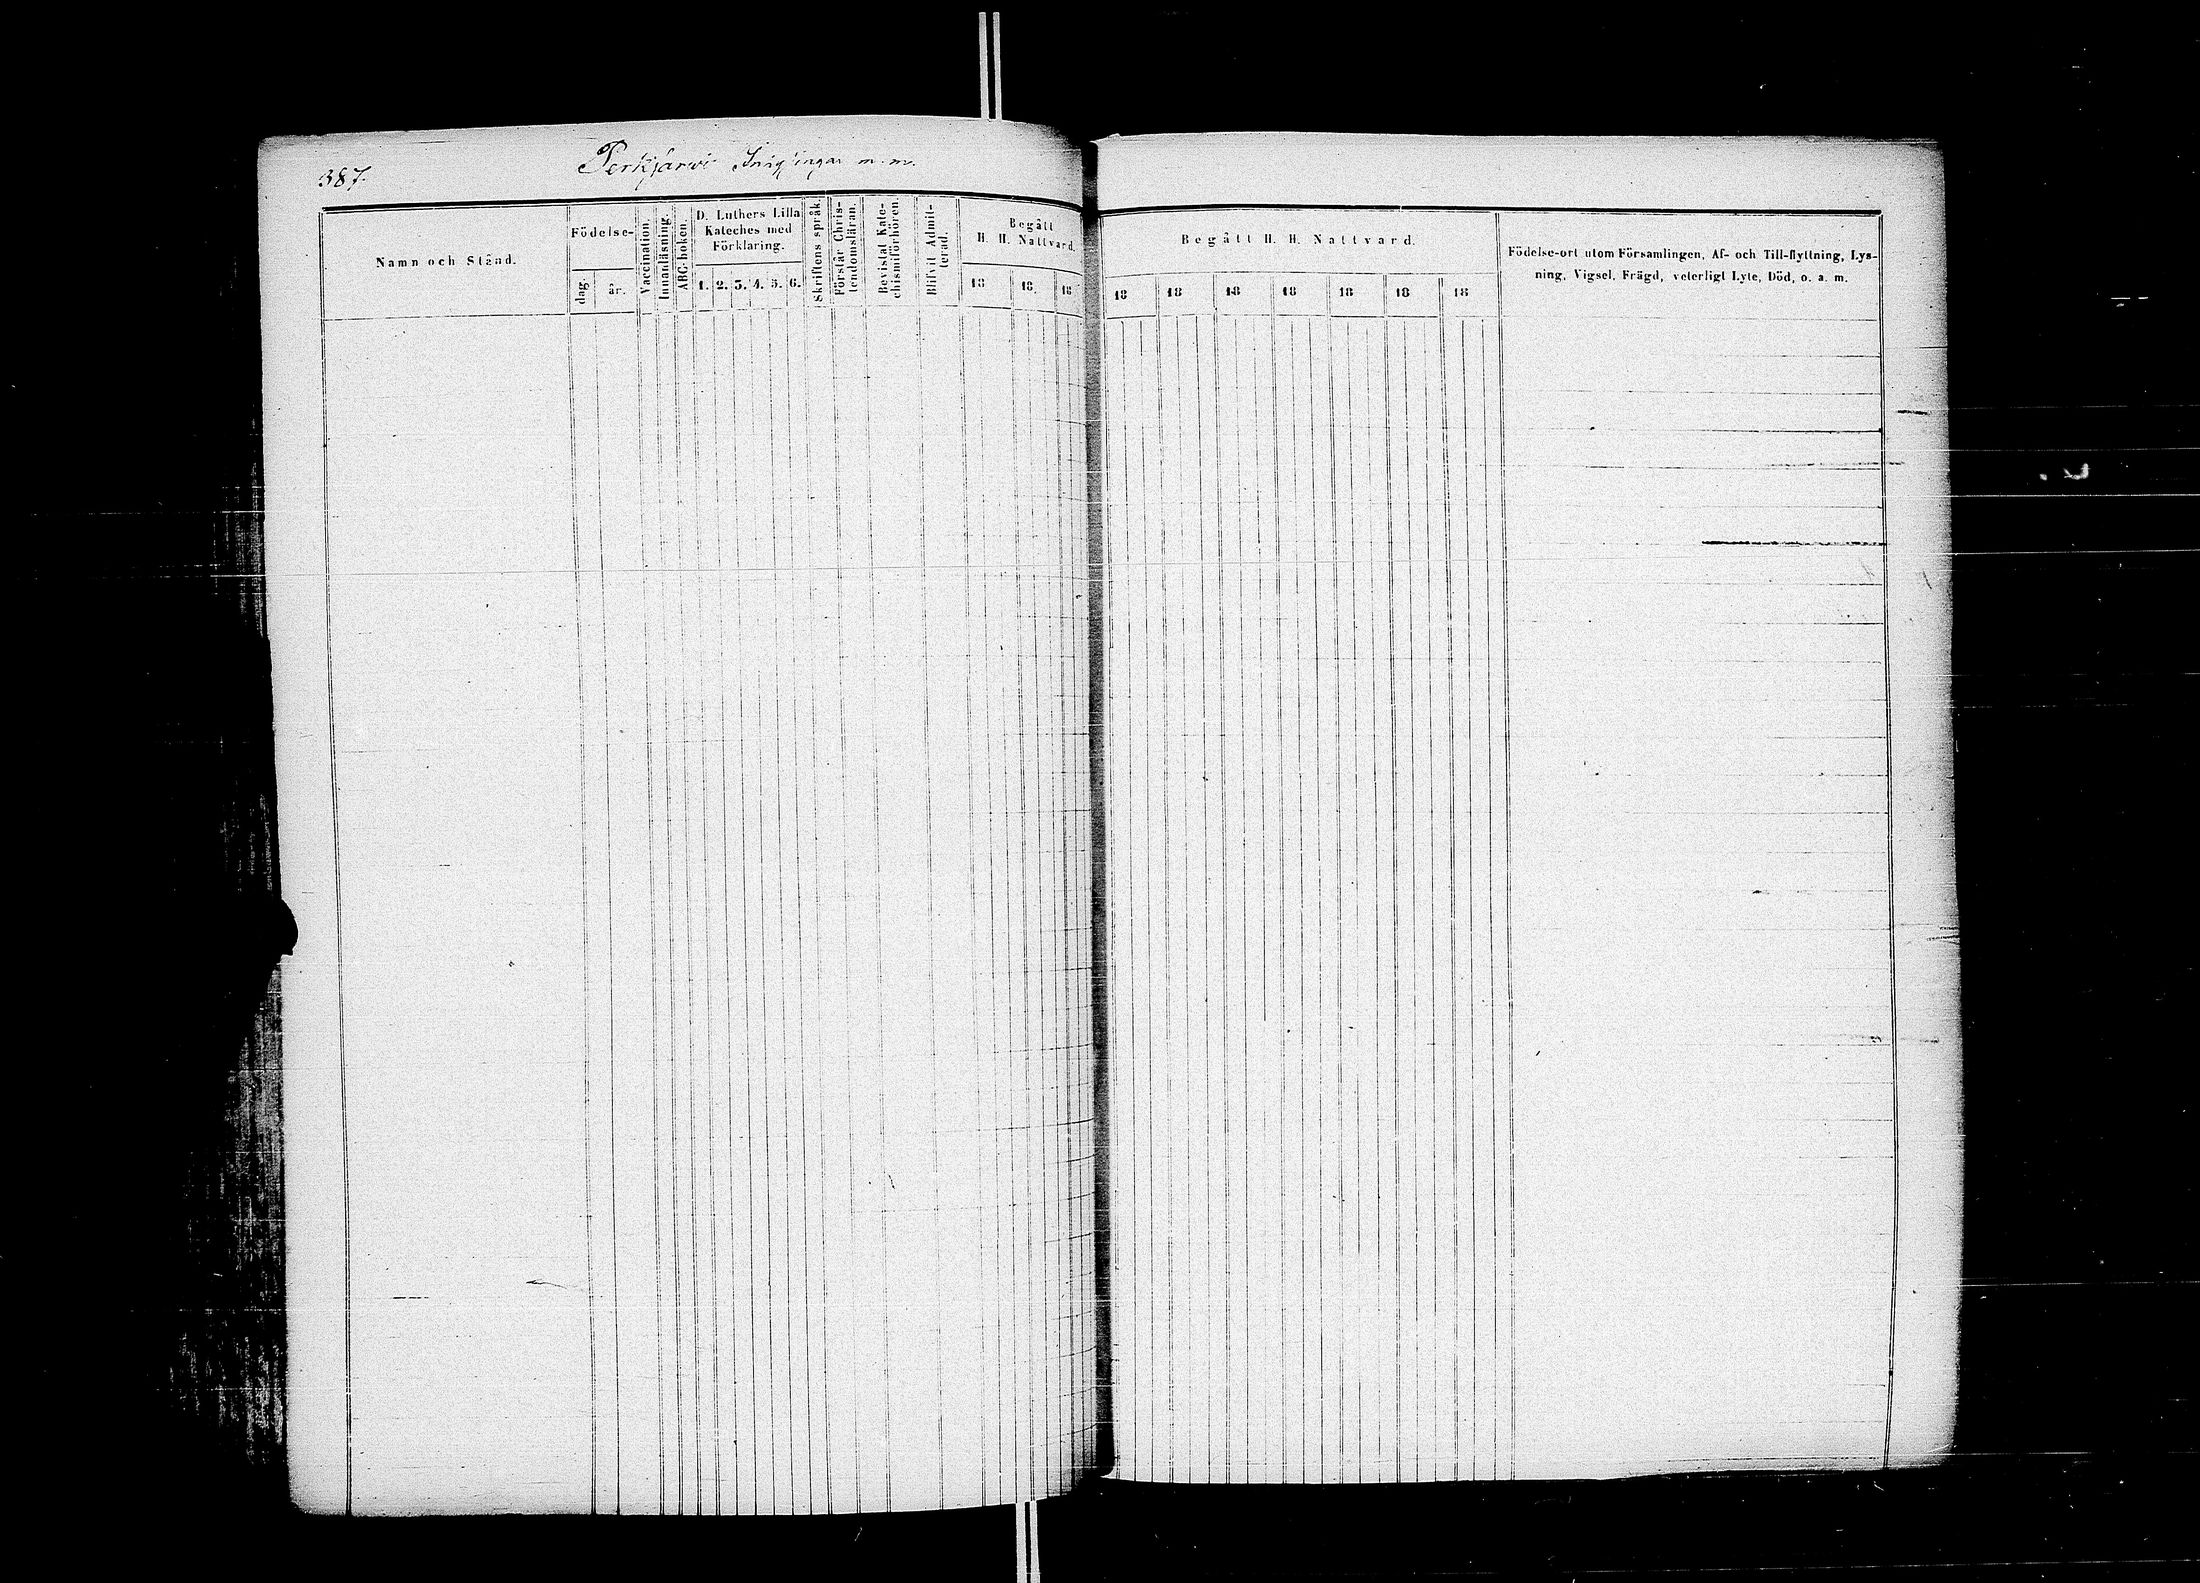 387.
Perkjärwi Inhysingar m. m.
Namn och Stånd.
Födelse-
dag.
år.
Vaccination.
Innanläsning.
ABC-boken.
D. Luthers Lilla
Kateches med
Förklaring.
1. 2. 3. 4. 5. 6.
Skriftens språk.
Förstår Chris-
tendomsläran.
Bevistat Kate-
chismiförhören.
Blifvit Admit-
terad.
Begått
H. H. Nattvard.
18 18. 18
Begått H. H. Nattvard.
18 18 18 18 18 18 18
Födelse-ort utom Församlingen, Af- och Till-flyttning, Lys-
ning, Vigsel, Frägd, veterligt Lyte, Död, o. a. m.